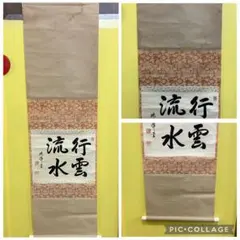 行雲
流水
行雲
流水
PIC•COLLAGE